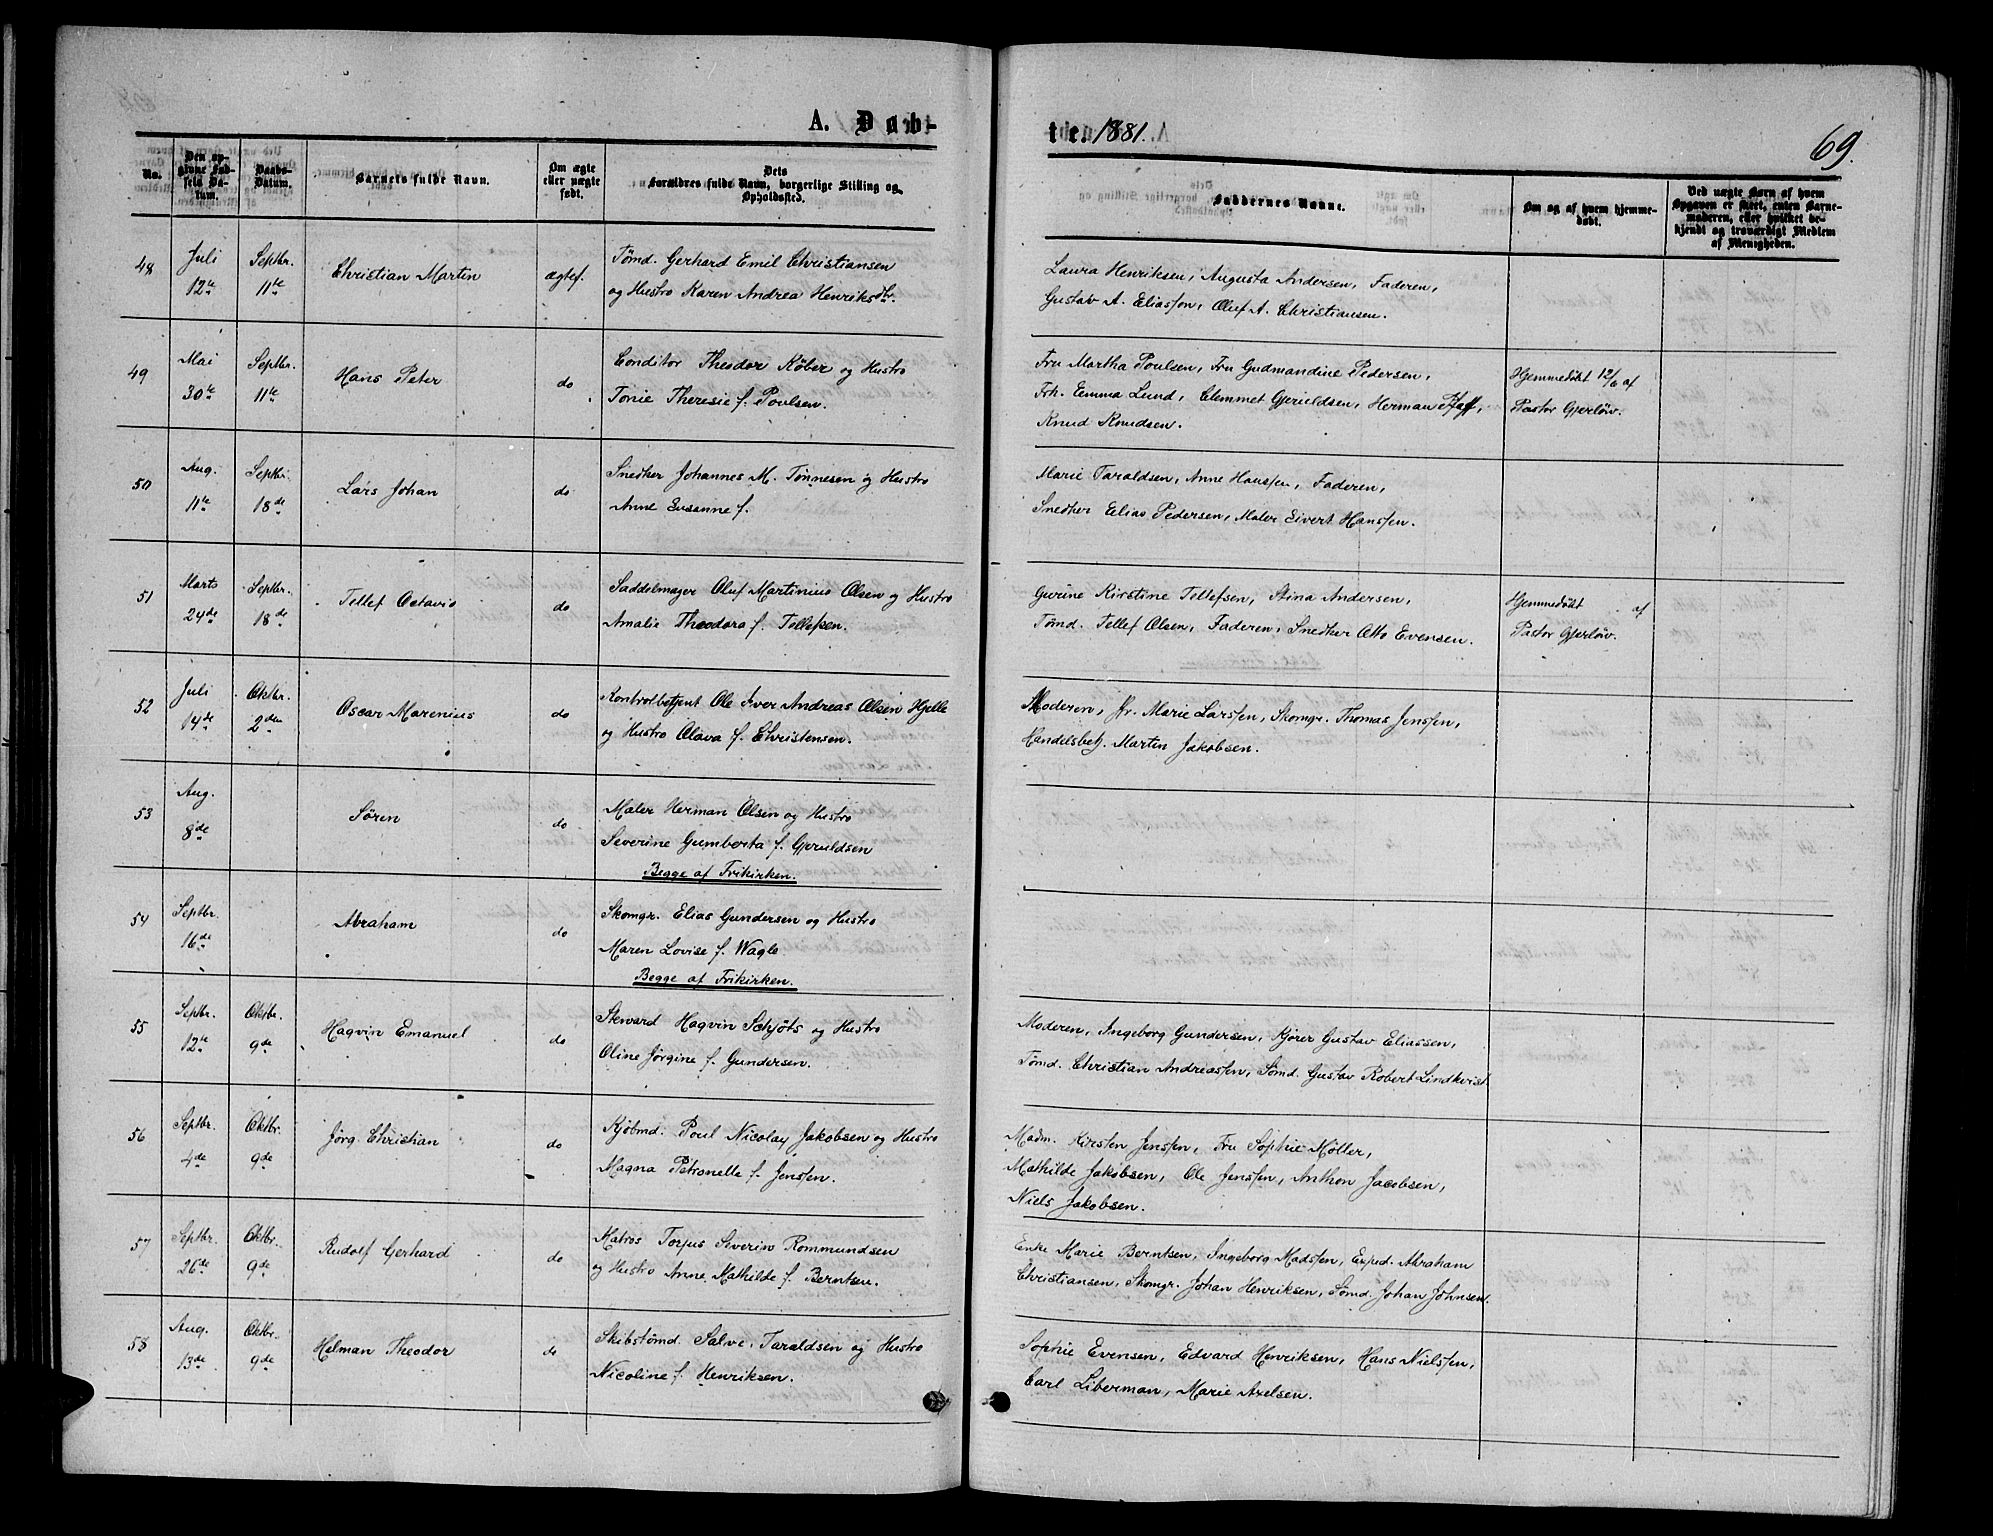 A. Døb-
te. 1881.
69.
No.
Den op-
givne Fød-
sels Da-
tum.
Daabs-
Datum.
Barnets fulde Navn.
Om ægte
eller uægte
født.
Dets
Forældres fulde Navn, borgerlige Stilling og
Opholdssted.
Faddernes Navne.
Om og af hvem hjemme-
døbt.
Ved uægte Børn af hvem
Opgaven er skeet, enten Barne-
moderen, eller hvilket be-
kjendt og troværdigt Medlem
af Menigheden.
48
Juli
12te
Septbr.
11te
Christian Martin
ægtef.
Tømd. Gerhard Emil Christiansen
og Hustro Karen Andrea Henriksdtr.
Laura Henriksen, Augusta Andersen, Faderen,
Gustav A. Eliassen, Oluf A. Christiansen.
49
Mai
30te
Septbr.
11te
Hans Peter
do
Conditor Theodor Köber og Hustro
Tonie Theresie f. Poulsen.
Fru Martha Poulsen, Fru Gudmandine Pedersen,
Frk. Emma Lund, Clemmet Gjeruldsen, Herman Pfaff,
Knud Knudsen.
Hjemmedøbt 12/6 af
Pastor Gjerløw.
50
Aug.
11te
Septbr.
18de
Lars Johan
do
Snedker Johannes M. Tønnesen og Hustro
Anne Susanne f.
Marie Taraldsen, Anne Hanssen, Faderen,
Snedker Elias Pedersen, Maler Eivert Hanssen.
51
Marts
24de
Septbr.
18de
Tellef Octavio
do
Saddelmager Oluf Martinius Olsen og Hustro
Amalie Theodora f. Tellefsen.
Gurine Kirstine Tellefsen, Stina Andersen,
Tømd. Tellef Olsen, Faderen, Snedker Otto Evensen.
Hjemmedøbt af
Pastor Gjerløw.
52
Juli
14de
Oktbr.
2den
Oscar Marenius
do
Kontrolbetjent Ole Iver Andreas Olsen Hjelle
og Hustro Olava f. Christensen.
Moderen, Jfr. Marie Larssen, Skomgr. Thomas Jenssen,
Handelsbetj. Martin Jakobsen.
53
Aug.
8de
Søren
do
Maler Herman Olsen og Hustro
Severine Gumberta f. Gjeruldsen
Begge af Frikirken.
54
Septbr.
16de
Abraham
do
Skomgr. Elias Gundersen og Hustro
Maren Lovise f. Wagle
Begge af Frikirken.
55
Septbr.
12te
Oktbr.
9de
Hagvin Emanuel
do
Steward Hagvin Schjöts og Hustro
Oline Jørgine f. Gundersen.
Moderen, Ingeborg Gundersen, Kjører Gustav Eliassen,
Tømd. Christian Andreassen, Sømd. Gustav Robert Lindkvist
56
Septbr.
4de
Oktbr.
9de
Jörg. Christian
do
Kjöbmd. Poul Nicolay Jakobsen og Hustro
Magna Petronelle f. Jenssen.
Madm. Kirsten Jenssen, Fru Sophie Möller,
Mathilde Jakobsen, Ole Jenssen, Anthon Jacobsen,
Niels Jakobsen.
57
Septbr.
26de
Oktbr.
9de
Rudolf Gerhard
do
Matros Torjus Severin Rommundsen
og Hustro Anne Mathilde f. Berntsen.
Enke Marie Berntsen, Ingeborg Madssen, Exped. Abraham
Christiansen, Skomgr. Johan Henriksen, Sømd. Johan Johnsen.
58
Aug.
13de
Oktbr.
9de
Helman Theodor
do
Skibstømd. Salve Taraldsen og Hustro
Nicoline f. Henriksen.
Sophie Evensen, Edvard Henriksen, Hans Nielssen,
Carl Liberman, Marie Axelsen.